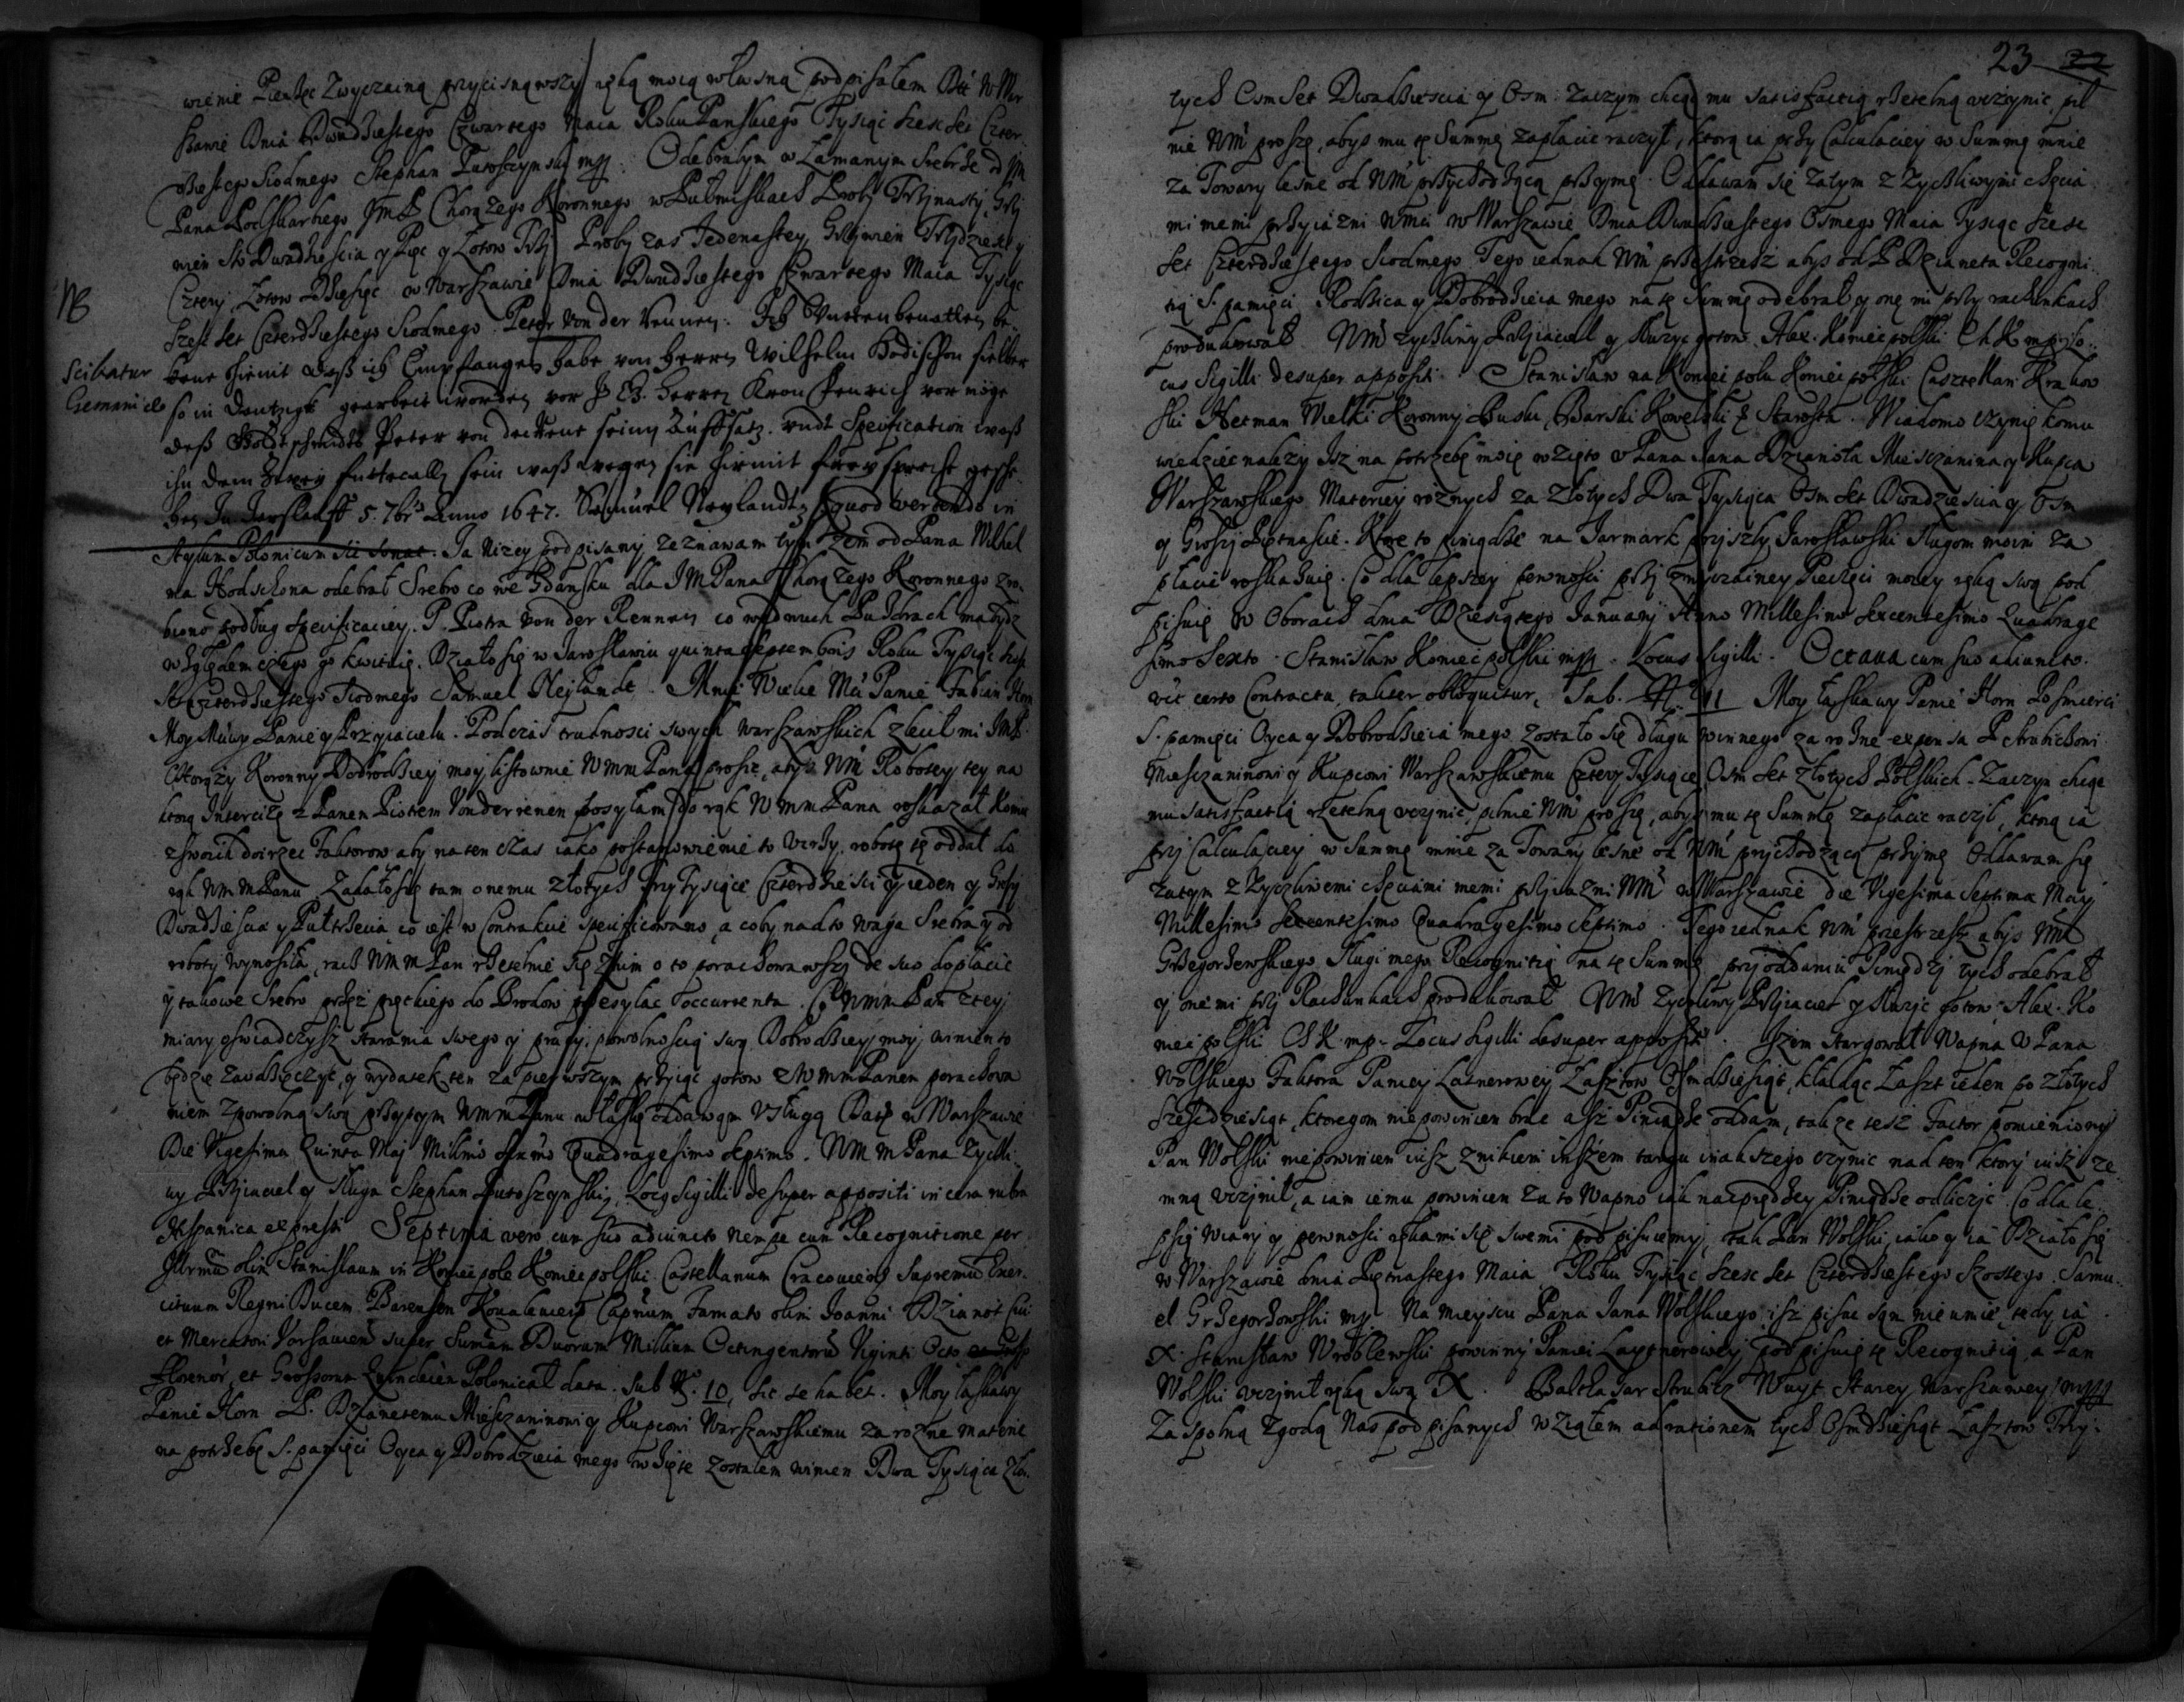 wienie Pieczęc Zwyczaina przycisnąwszy ręką moią własną podpisałem Dtt w War
szawie Dnia Dwudziestego Czwartego Maia Roku Panskiego Tysiąc szescset Czter
dziestego Siodmego Stephan mpp. Odebrałem w Łamanym Srebrze od JM
Pana Podskarbiego JmP Chorązego Koronnego w Proby Trzynasty Grzy
wien sto Dwadziescia y Pięc y Łotow Trzy Proby zas Jedenastey Grzywien Trzydziesci y
Cztery, Łotow Dziesięc w Warszawie Dnia Dwudziestego Czwartego Maia Tysiąc
NB
szesc set Czterdziestego Siodmego. Peter Von der Rennen. Ich
Scibatur
kene hiemit daß ich Empfangen habe von Herren Wilhelm Hodischon
Germanice
so in Dantzigk gearbeit worden vor Herren Kron Fenrich vor möge
deß Goldtschmidts Peter von der Rene seinen Auffsatz. undt Specification waß
ihn dem sein waß wegen sie hiermit frey spreche gesche
hen In Jarslauff 5. 7bris Anno 1647. Samuel Neylandt quod vertendo in
stylum Polonicum sic sonat. Ja Nizey podpisany zeznawam tym zem od Pana Wilhel
ma Hodschona odebrał Srebro co we Gdansku dla JMPana Chorązego Koronnego zro
biono podług specificaciey. P. Piotra Von der Rennen co w dwuch Pudłach
względem czego go kwituię. Działo się w Jarosławiu quinta Septembris Roku Tysiąc szesc
set czterdziestego Siodmego Samuel Nejlandt. Mnie Wielce Mci Panie Fabian Horn
Moy Mciwy Panie y Przyiacielu. Podczas trudnosci swych Warszawskich zlecił mi JmP.
Chorązy Koronny Dobrodziey moy listownie WmmPana prosic, abys WM Robotey tey na
ktorą Intercizę z Panem Piotrem Vonderrenen posyłam do rąk WmmPana roskazał komu
z swoich doirzec Faktorow aby na ten czas iako postanowienie to robotę tę oddał do
rąk WmmPanu. Zadało się tam onemu złotych Trzy Tysiące Czterdziesci y ieden y Grszy
Dwadziescia y Pułtrzecia co iest w Contrakcie specificowano, a coby nad to waga Srebra y od
roboty wynosiła, racz WmmPan rzetelnie się z nim o to porachowawszy de suo dopłacic
y takowe Srebro przez prętkiego do Brodow przesyłac occurrenta. Co WmmPan z tey
miary oswiadczysz starania swego y pracy, powolnoscią swą Dobrodziey moy winien to
będzie zawdzięczyc, y wydatek ten za pierwszym przyiąc gotow z WmmPanem porachowa
niem z powolną swą przytym WmmPanu w łaskę oddawam usługą Datę w Warszawie
Die Vigesima Quinta Maj Millmo sexcmo Quadragesimo Septimo. WMmPana Zyczli
wy Przyiaciel y Sługa Stephan. Locus Sigilli desuper appositi in cera rubra
Hispanica expressi Septima vero cum suo adiuncto nempe cum Recognitione per
Illrmu olim Stanislaum in Koniecpole Koniecpolski Castellanum Cracouiens Supremu Exer
cituum Regni Ducem Barensem Kovaliens Capneum Famato olim Joanni Dzianot ciui
et Mercatori Varsauiens super Summam Duorum Millium Octingentoru Viginti Octo
florenor, et Grossorum Quindecim Polonical data. Sub N. 10, sic se habet. Moy łaskawy
Panie Horn. P. Dzianetemu Miesczaninowi y Kupcowi Warszawskiemu za rozne materie
na potrzebę S. pamięci Oyca y Dobrodzieia mego wzięte zostałem winien Dwa Tysiąca zło
23 22
tych Osmset Dwadziescia y Osm: zaczym chcąc mu satisfactią rzetelną uczynic, pil
nie WM proszę, abys mu tę Summę zapłacic raczył, ktorą ia przy Calculaciey w Summę mnie
za Towary lesne od WM przychodzącą przyymę. Oddawam się zatym z zyczliwymi chęcia
mi memi przyiazni WMci w Warszawie Dnia Dwudziestego Osmego Maia Tysiąc szesc
set Czterdziestego Siodmego Tego iednak WM przestrzesz abys od P Dzianeta Recogni
tią S. pamięci Rodzica y Dobrodzieia mego na tę Summę odebrał y onę mi przy rachunkach
produkował WM zyczliwy Przyiaciell y słuzyc gotow. Alex. Koniecpolski Ch K mp. Lo
cus Sigilli desuper appositi. Stanisław na Koniecpolu Koniecpolski Casztellan Krakow
ski Hetman Wielki Koronny Buski, Barski Kowelski Starosta. Wiadomo czynię komu
wiedziec nalezy Isz na potrzebę moię wzięto u Pana Jana Dzianota Miesczanina y Kupca
Warszawskiego Materiey roznych za złotych Dwa Tysiąca Osm set Dwadziescia y Osm
y Groszy Piętnascie. Ktore to pieniądze na Jarmark przyszły Jarosławski sługom moim za
płacic roskazuię. Co dla lepszey pewnosci przy zwyczainey Pieczęci moiey ręką swą pod
pisuię w Oborach dnia Dziesiątego Januarij Anno Millesimo Sexcentesimo Quadrage
simo Sexto. Stanisław Koniecpolski mpp. Locus Sigilli. Octava cum suo adiuncto.
vic certo Contractu, taliter obloquitur, Sub. N. 11 Moy łaskawy Panie Horn Po smierci
S. pamięci Oyca y Dobrodzieia mego zostało się długu winnego za rozne expensa P
Miesczaninowi y Kupcowi Warszawskiemu Cztery Tysiące Osm set złotych Polskich. Zaczym chcąc
mu satisfactią rzetelną uczynic, pilnie WM proszę, abys mu tę Summę zapłacic raczył, ktorą ia
przy Calculaciey w Summę mnie za Towary lesne od WM przychodzącą przyymę Oddawam się
zatym z Zyczliwemi chęciami memi przyiazni WMci w Warszawie die Vigesima Septima May
Millesimo Sexcentesimo Quadragesimo Septimo. Tego iednak WM przestrzesz abys WM
Grzegorzewskiego Sługi mego Recognitią na tę Summę przy oddaniu Pieniędzy tych odebrał
y one mi przy Rachunkach produkował WM Zyczliwy Przyiaciel y słuzyc gotow. Alex. Ko
niecpolski Ch K. mp. Locus Sigilli desuper appositi. Iszem stargował Wapna u Pana
Wolskiego Faktora Paniey Laxnerowey Łasztow Osmdziesiąt, kładąc Łaszt ieden po złotych
szescdziesiąt, ktoregom nie powinien brac asz Pieniądze oddam, takze tesz Factor pomieniony
Pan Wolski nie powinien iusz z nikiem inszem targu inakszego czynic nad ten ktory iusz ze
mną uczynił, a iam iemu powinien za to Wapno iak nazprędzey Pieniądze odliczyc. Co dla le
pszej wiary y pewnosci rękami się swemi podpisuiemy, tak Pan Wolski, iako y ia Działo się
w Warszawie dnia Piętnastego Maia, Roku Tysiąc szesc set Czterdziestego Szostego. Samu
el Grzegorzowski mp. Na mieyscu Pana Jana Wolskiego, isz pisac sąm nie umie, tedy ia
X. Stanisław Wroblewski powinny Paniei Laxnerowiey, podpisuię tę Recognitią, a Pan
Wolski uczynił ręką swą X. Balthasar Strubicz Wuyt Starey Warszawey mpp
Za społną zgodą Nas podpisanych wziąłem ad rationem tych Osmdziesiąt Łasztow Trzy